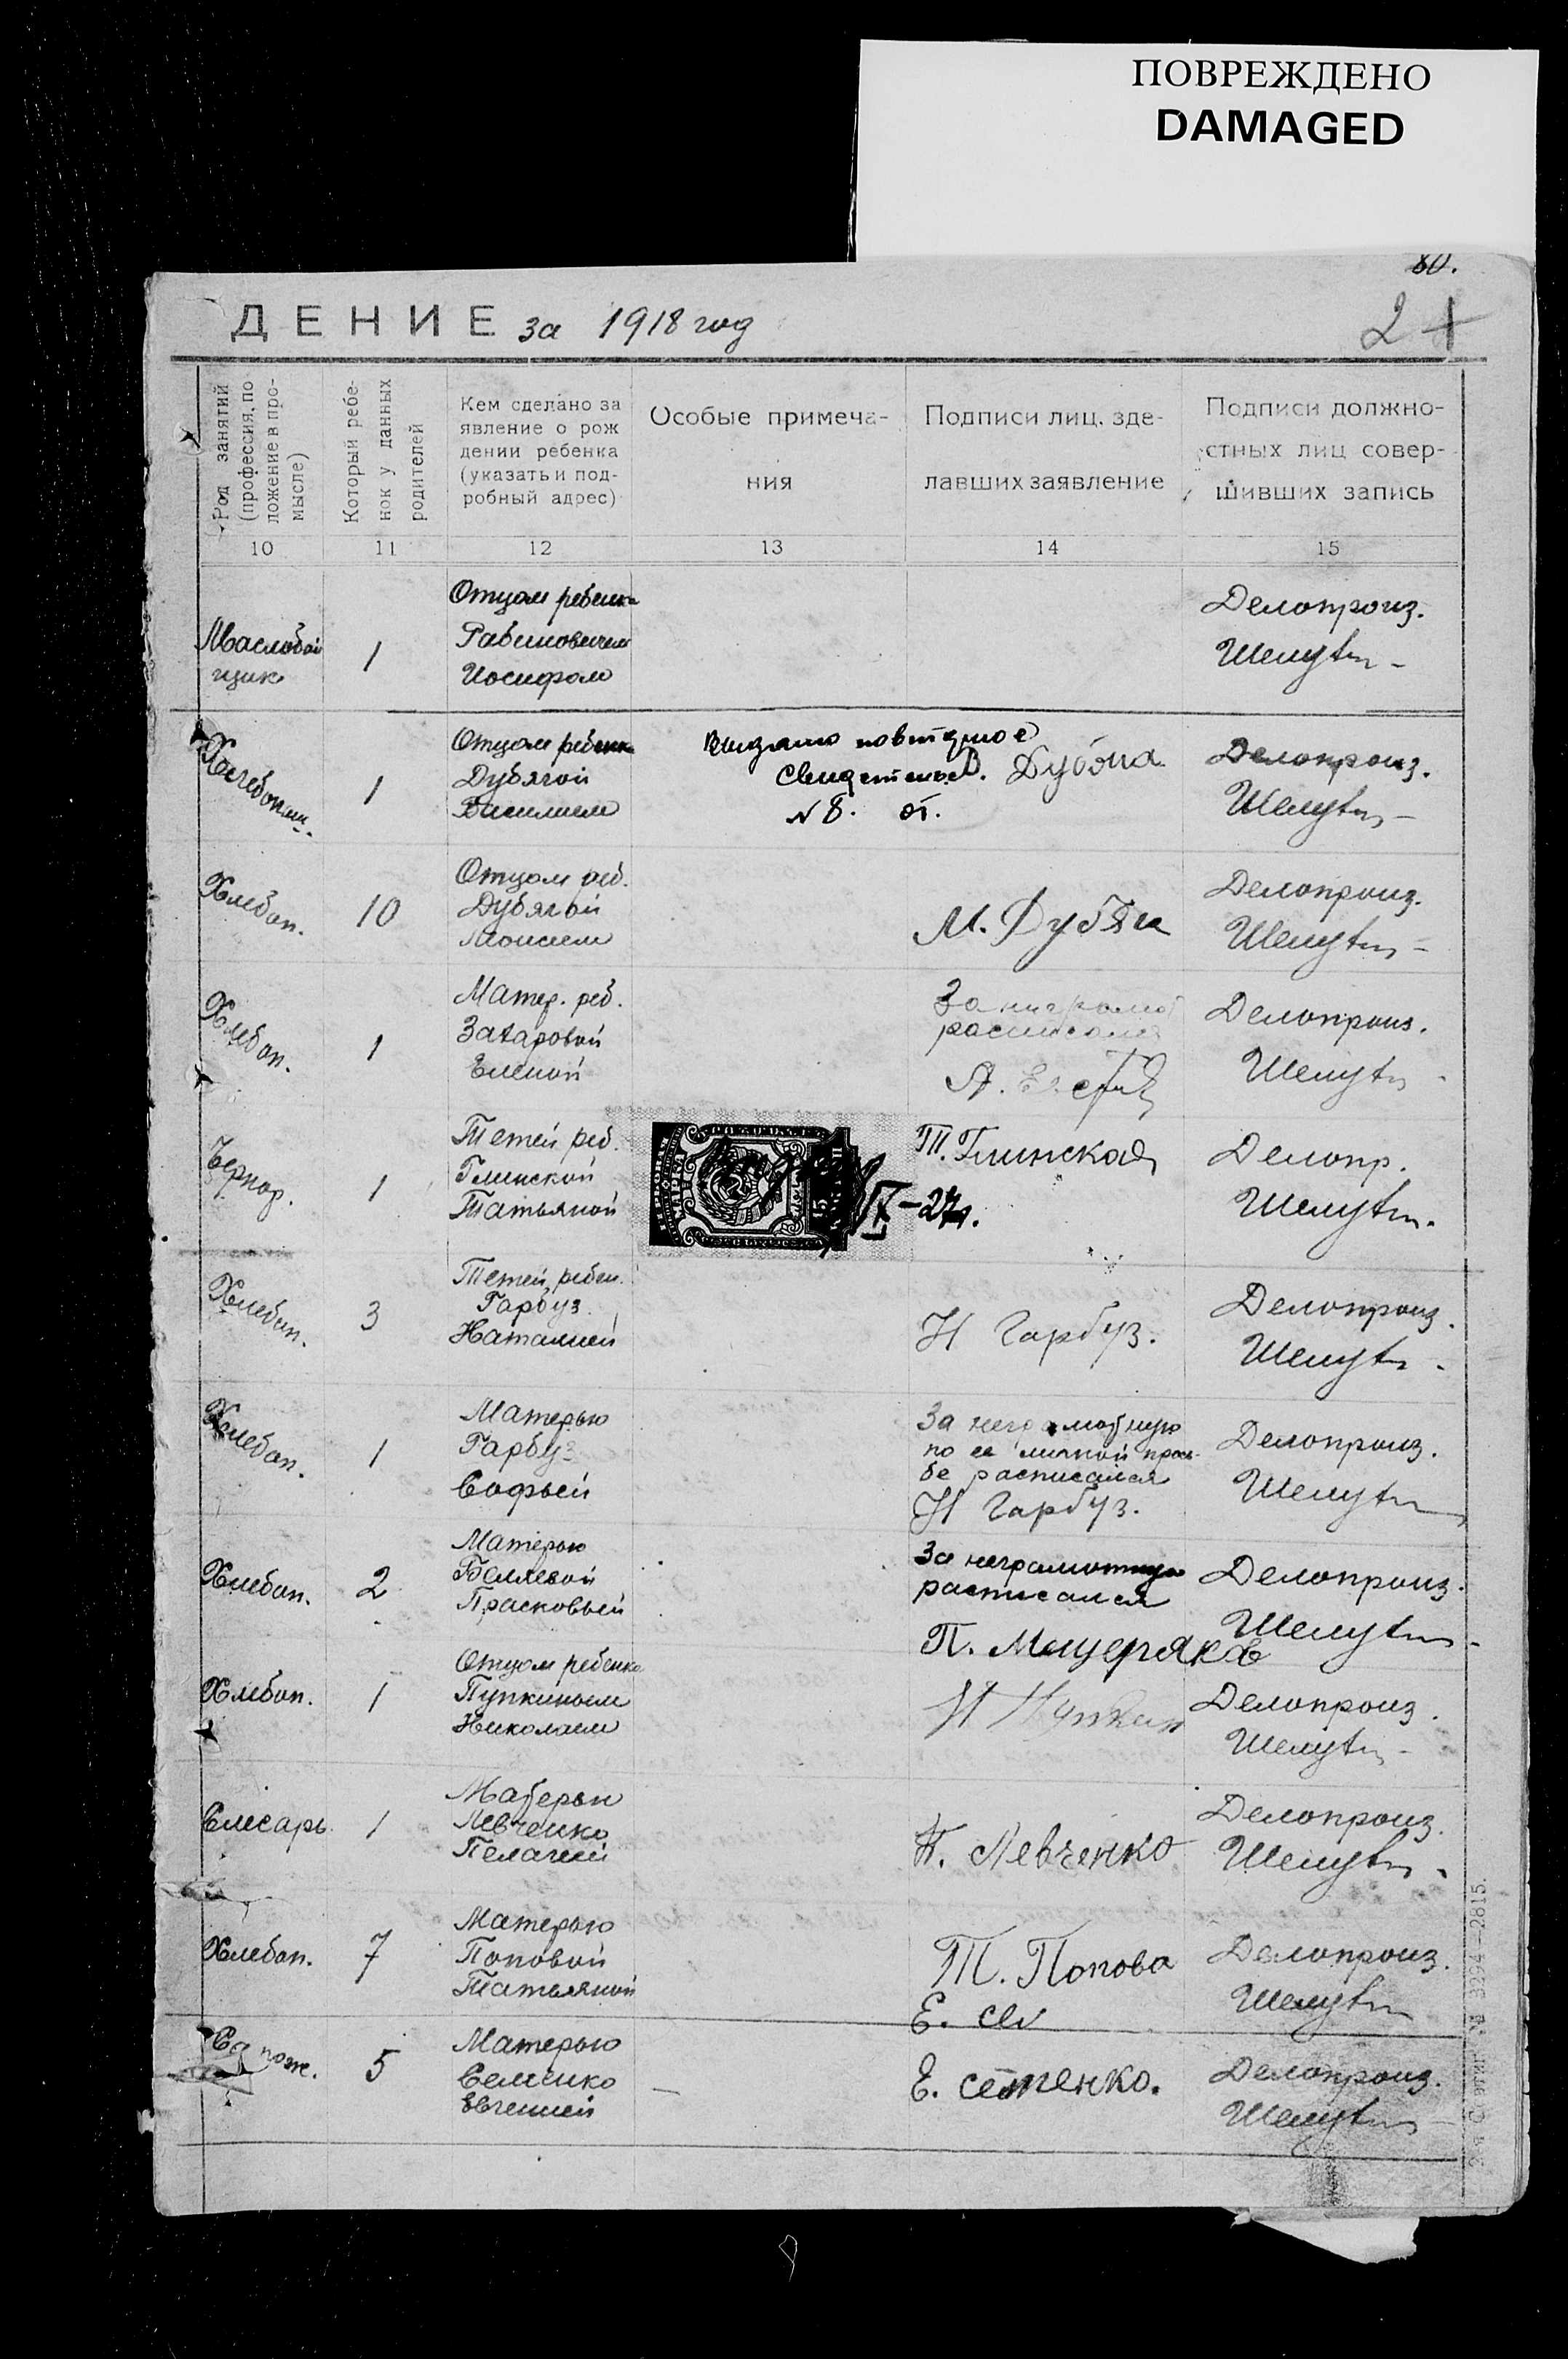 ПОВРЕЖДЕНО
DAMAGED
80.
21
ДЕНИЕ за 1918 год
Род занятий
(профессия, по
ложение в про-
мысле)
Который ребе-
нок у данных
родителей
Кем сделано за
явление о рож
дении ребенка
(указать и под-
робный адрес)
Особые примеча-
ния
Подписи лиц, зде-
лавших заявление
Подписи должно-
стных лиц совер-
шивших запись
10 11 12 13 14 15
Маслобой
щик
1
Отцом ребенка
Рабиновичем
Иосифом
Делопроиз.
1
Отцом ребенка
Дубягой
Василием
Выдано повторное
N 8. от.
В. Дубяга
Делопроиз.
Хлебоп.
10
Отцом реб.
Дубягой
Моисеем
М. Дубяга
Делопроиз.
Хлебоп.
1
Матер. реб.
Захаровой
Еленой
За неграмот
расписался
Делопроиз.
Чернор.
1
Тетей реб.
Глинской
Татьяной
-27г.
Т. Глинская
Делопр.
Хлебоп.
3
Тетей, ребен.
Гарбуз
Наталией
Н Гарбуз.
Делопроиз.
Хлебоп.
1
Матерью
Гарбуз
Софьей
За неграмотную
по ее личной прось-
бе расписался
Н Гарбуз.
Делопроиз.
Хлебоп.
2
Матерью
Беляевой
Прасковьей
За неграмотную
расписался
П. Мещеряков
Делопроиз.
Хлебоп.
1
Отцом ребенка
Пупкиным
Николаем
Н Пупкин
Делопроиз.
Слесарь
1
Матерью
Левченко
Пелагеей
П. Левченко
Делопроиз.
Хлебоп.
7
Матерью
Поповой
Татьяной
Т. Попова
Делопроиз.
Е. Се
Сапож.
5
Матерью
Семенко
Евгенией
Е. Семенко.
Делопроиз.
№ 3294—2815.